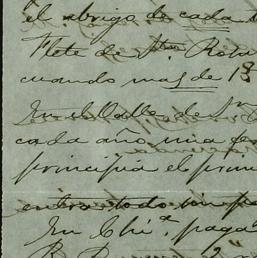 el abrigo de cada
Flete de Sta Rosa
cuando mas de 13
En el Valle de
cada año una
principia el
entra todo un
En Chi.a paga